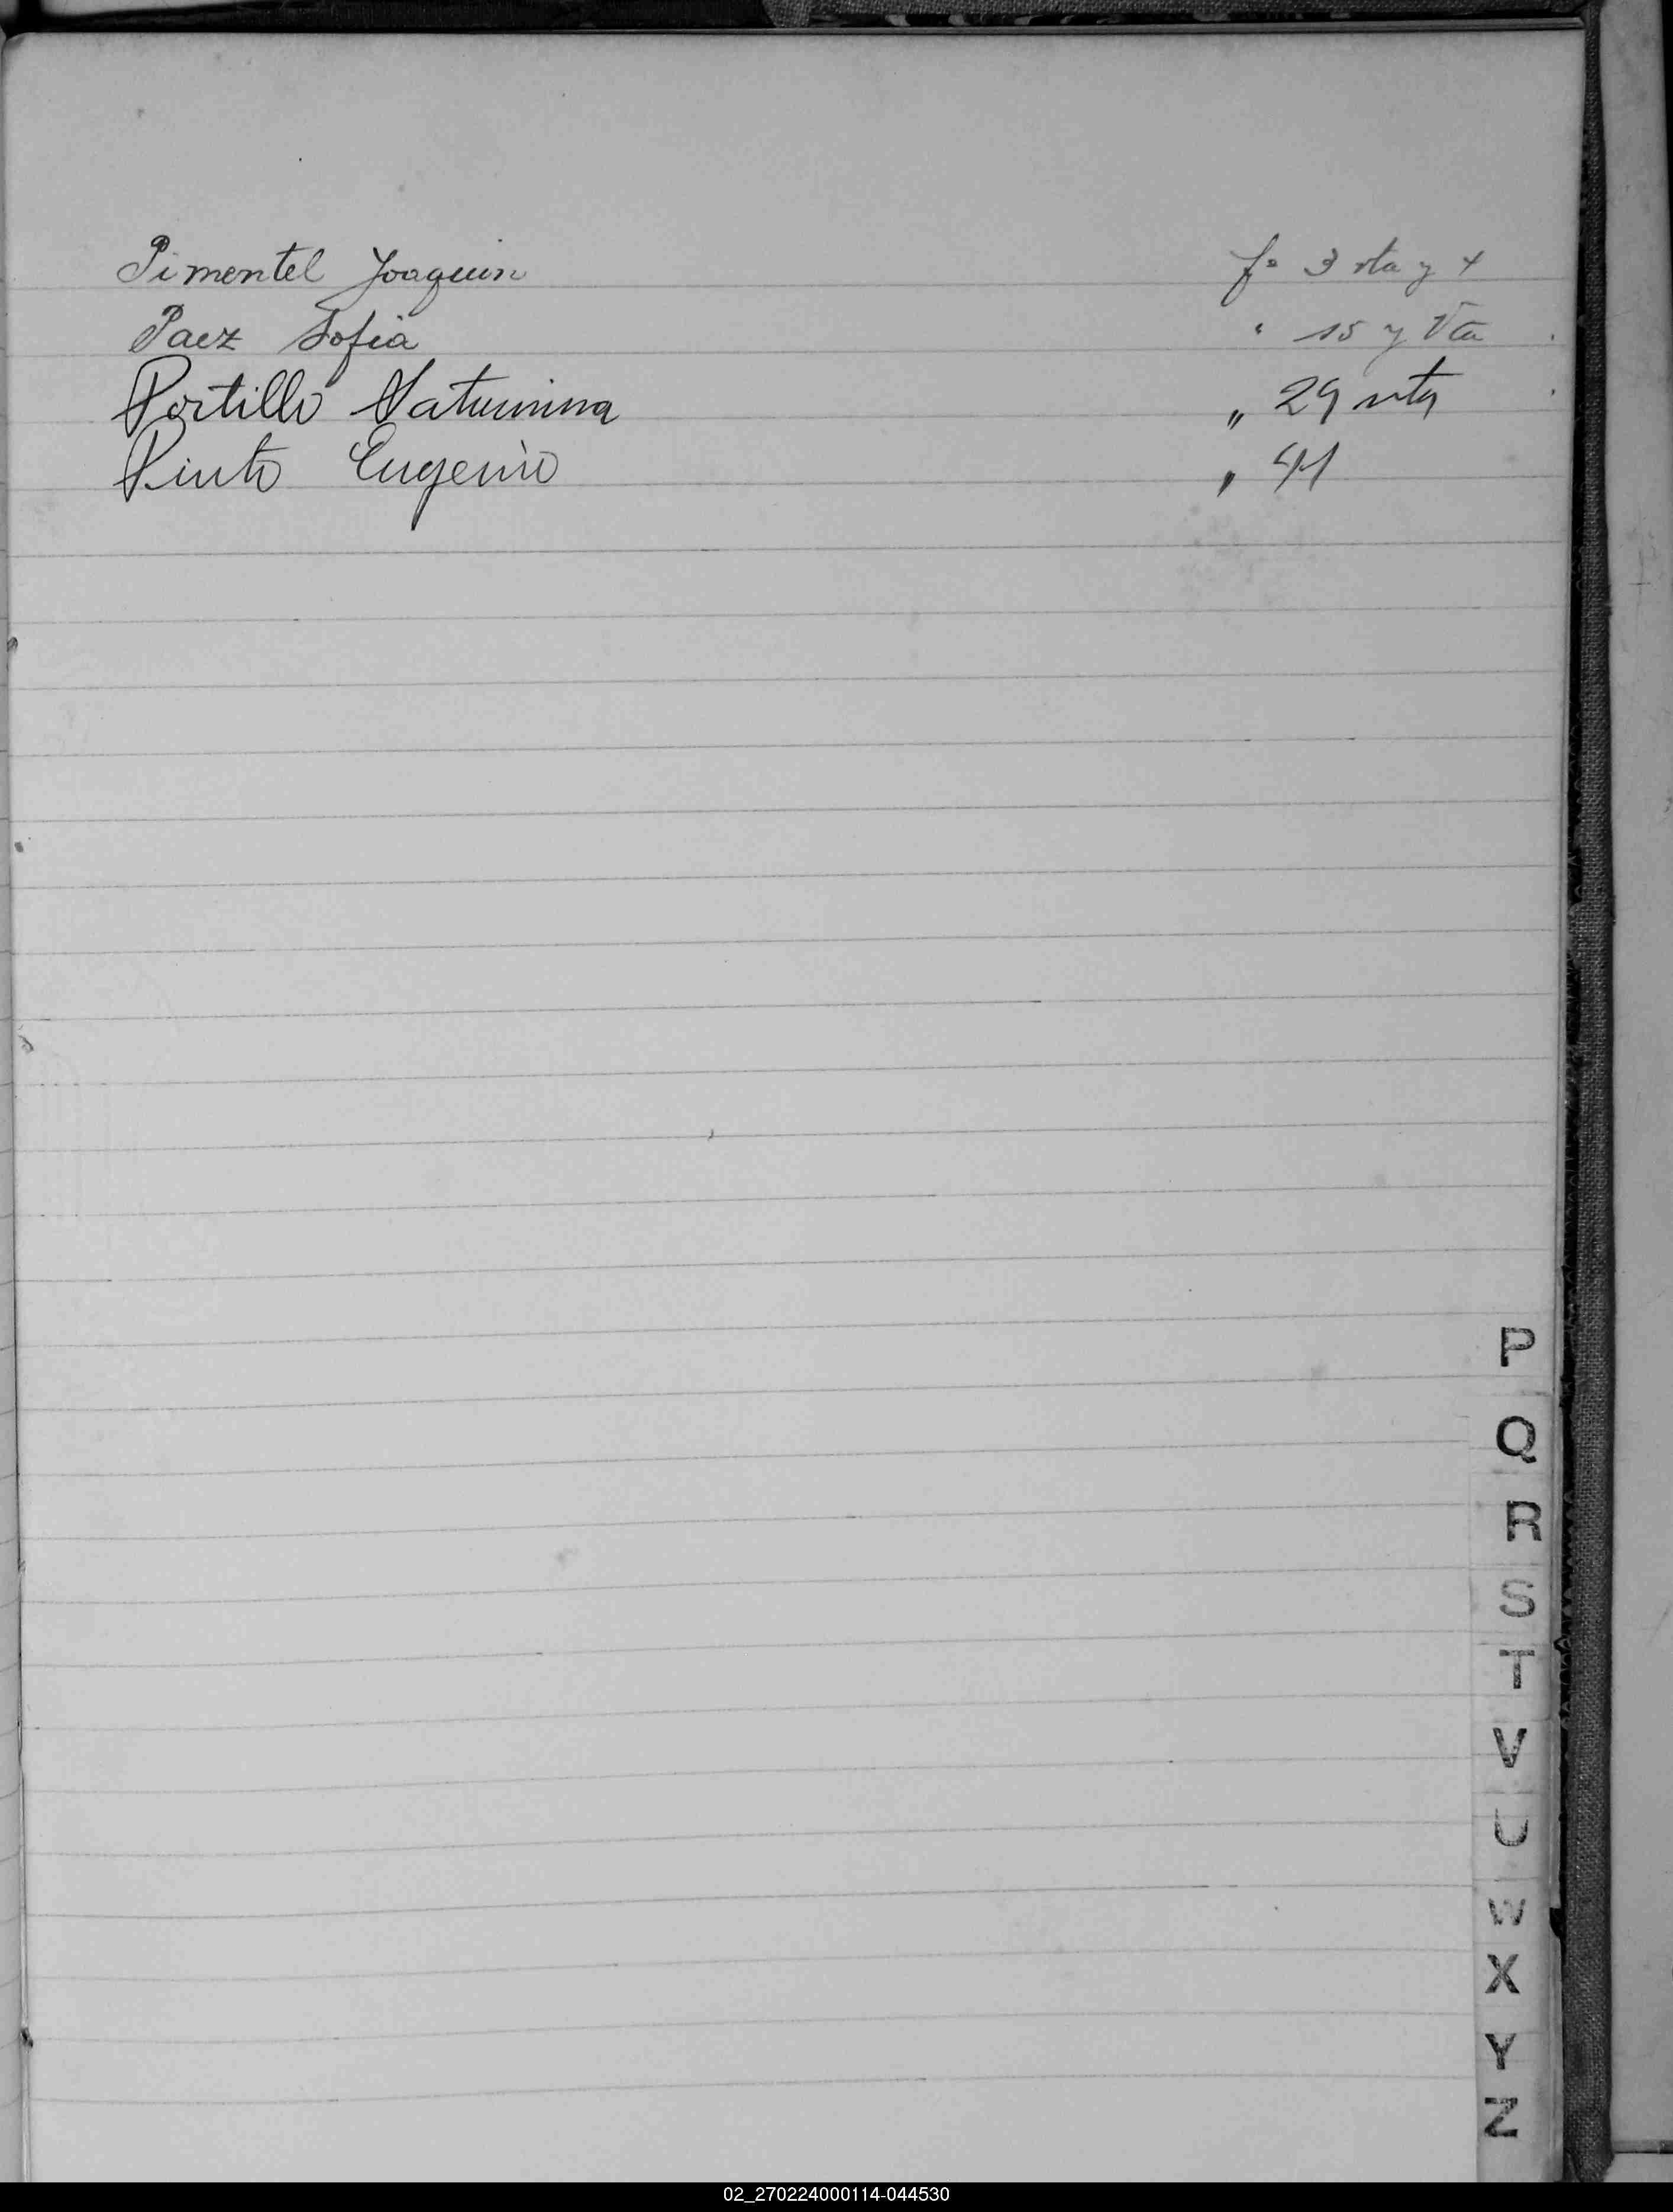 Pimentel Joaquin fº 3 vta y 4
Paez Sofia " 15 y Vta
Portillo Saturnina " 29 vta
Pinto Eugenio " 41
P
Q
R
S
T
V
U
W
X
Y
Z
02_270224000114-044530